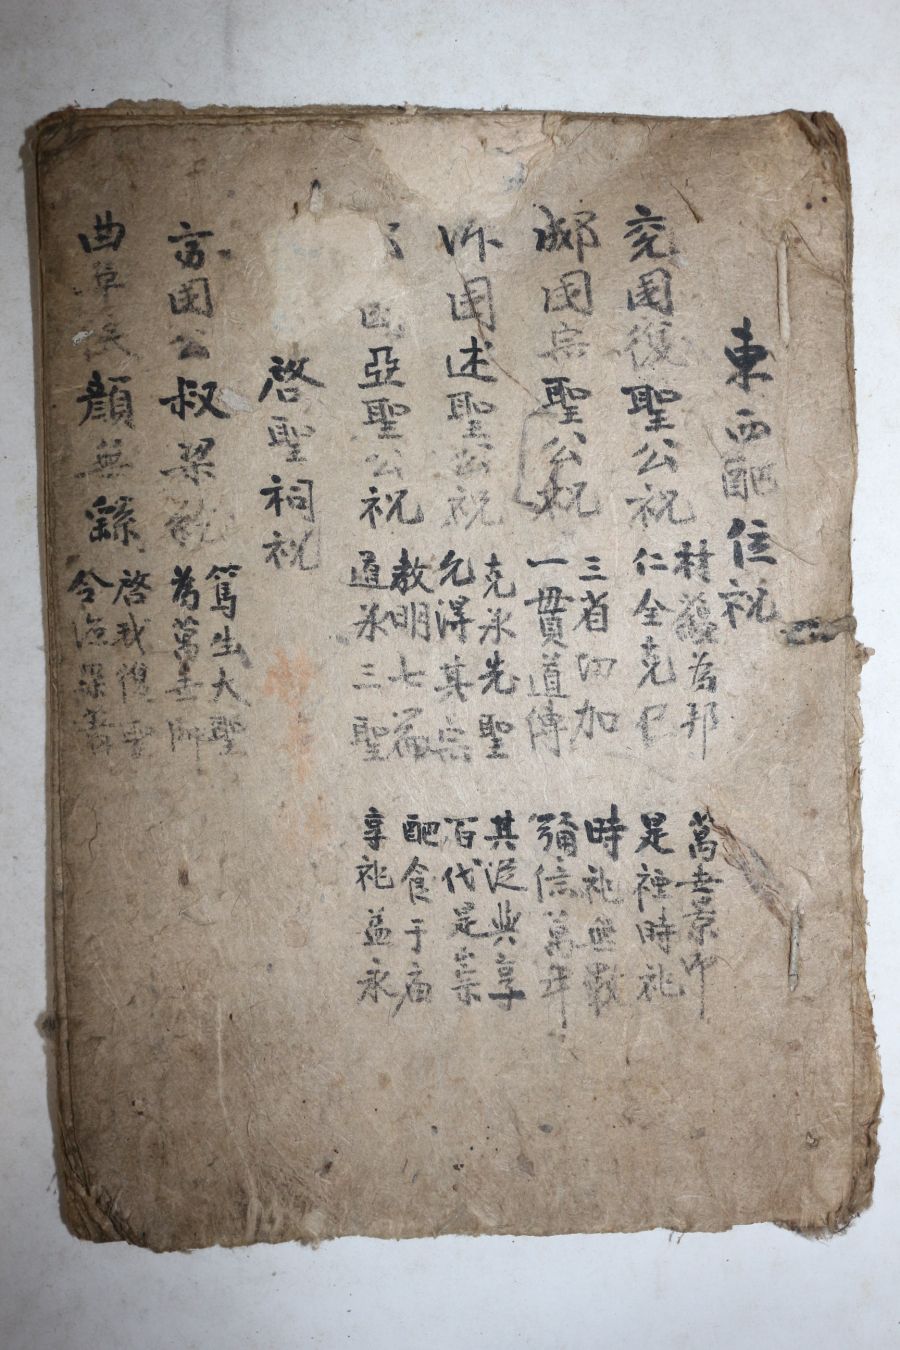 東西配位祝
兖國復聖公祝
材 為邦
仁全克仁
萬世景仰
是禋時祀
郕國宗聖公祝
三省 加
一貫道傳
時祀無斁
彌信萬年
沂國述聖公祝
克承先聖
允得其宗
其從與享
百代是崇
國亞聖公祝
教明七篇
道承三聖
配食于庙
享祀益永
啓聖祠祝
國公叔梁紇
篤生大聖
為萬世師
曲阜侯顔無繇
啓我復聖
令